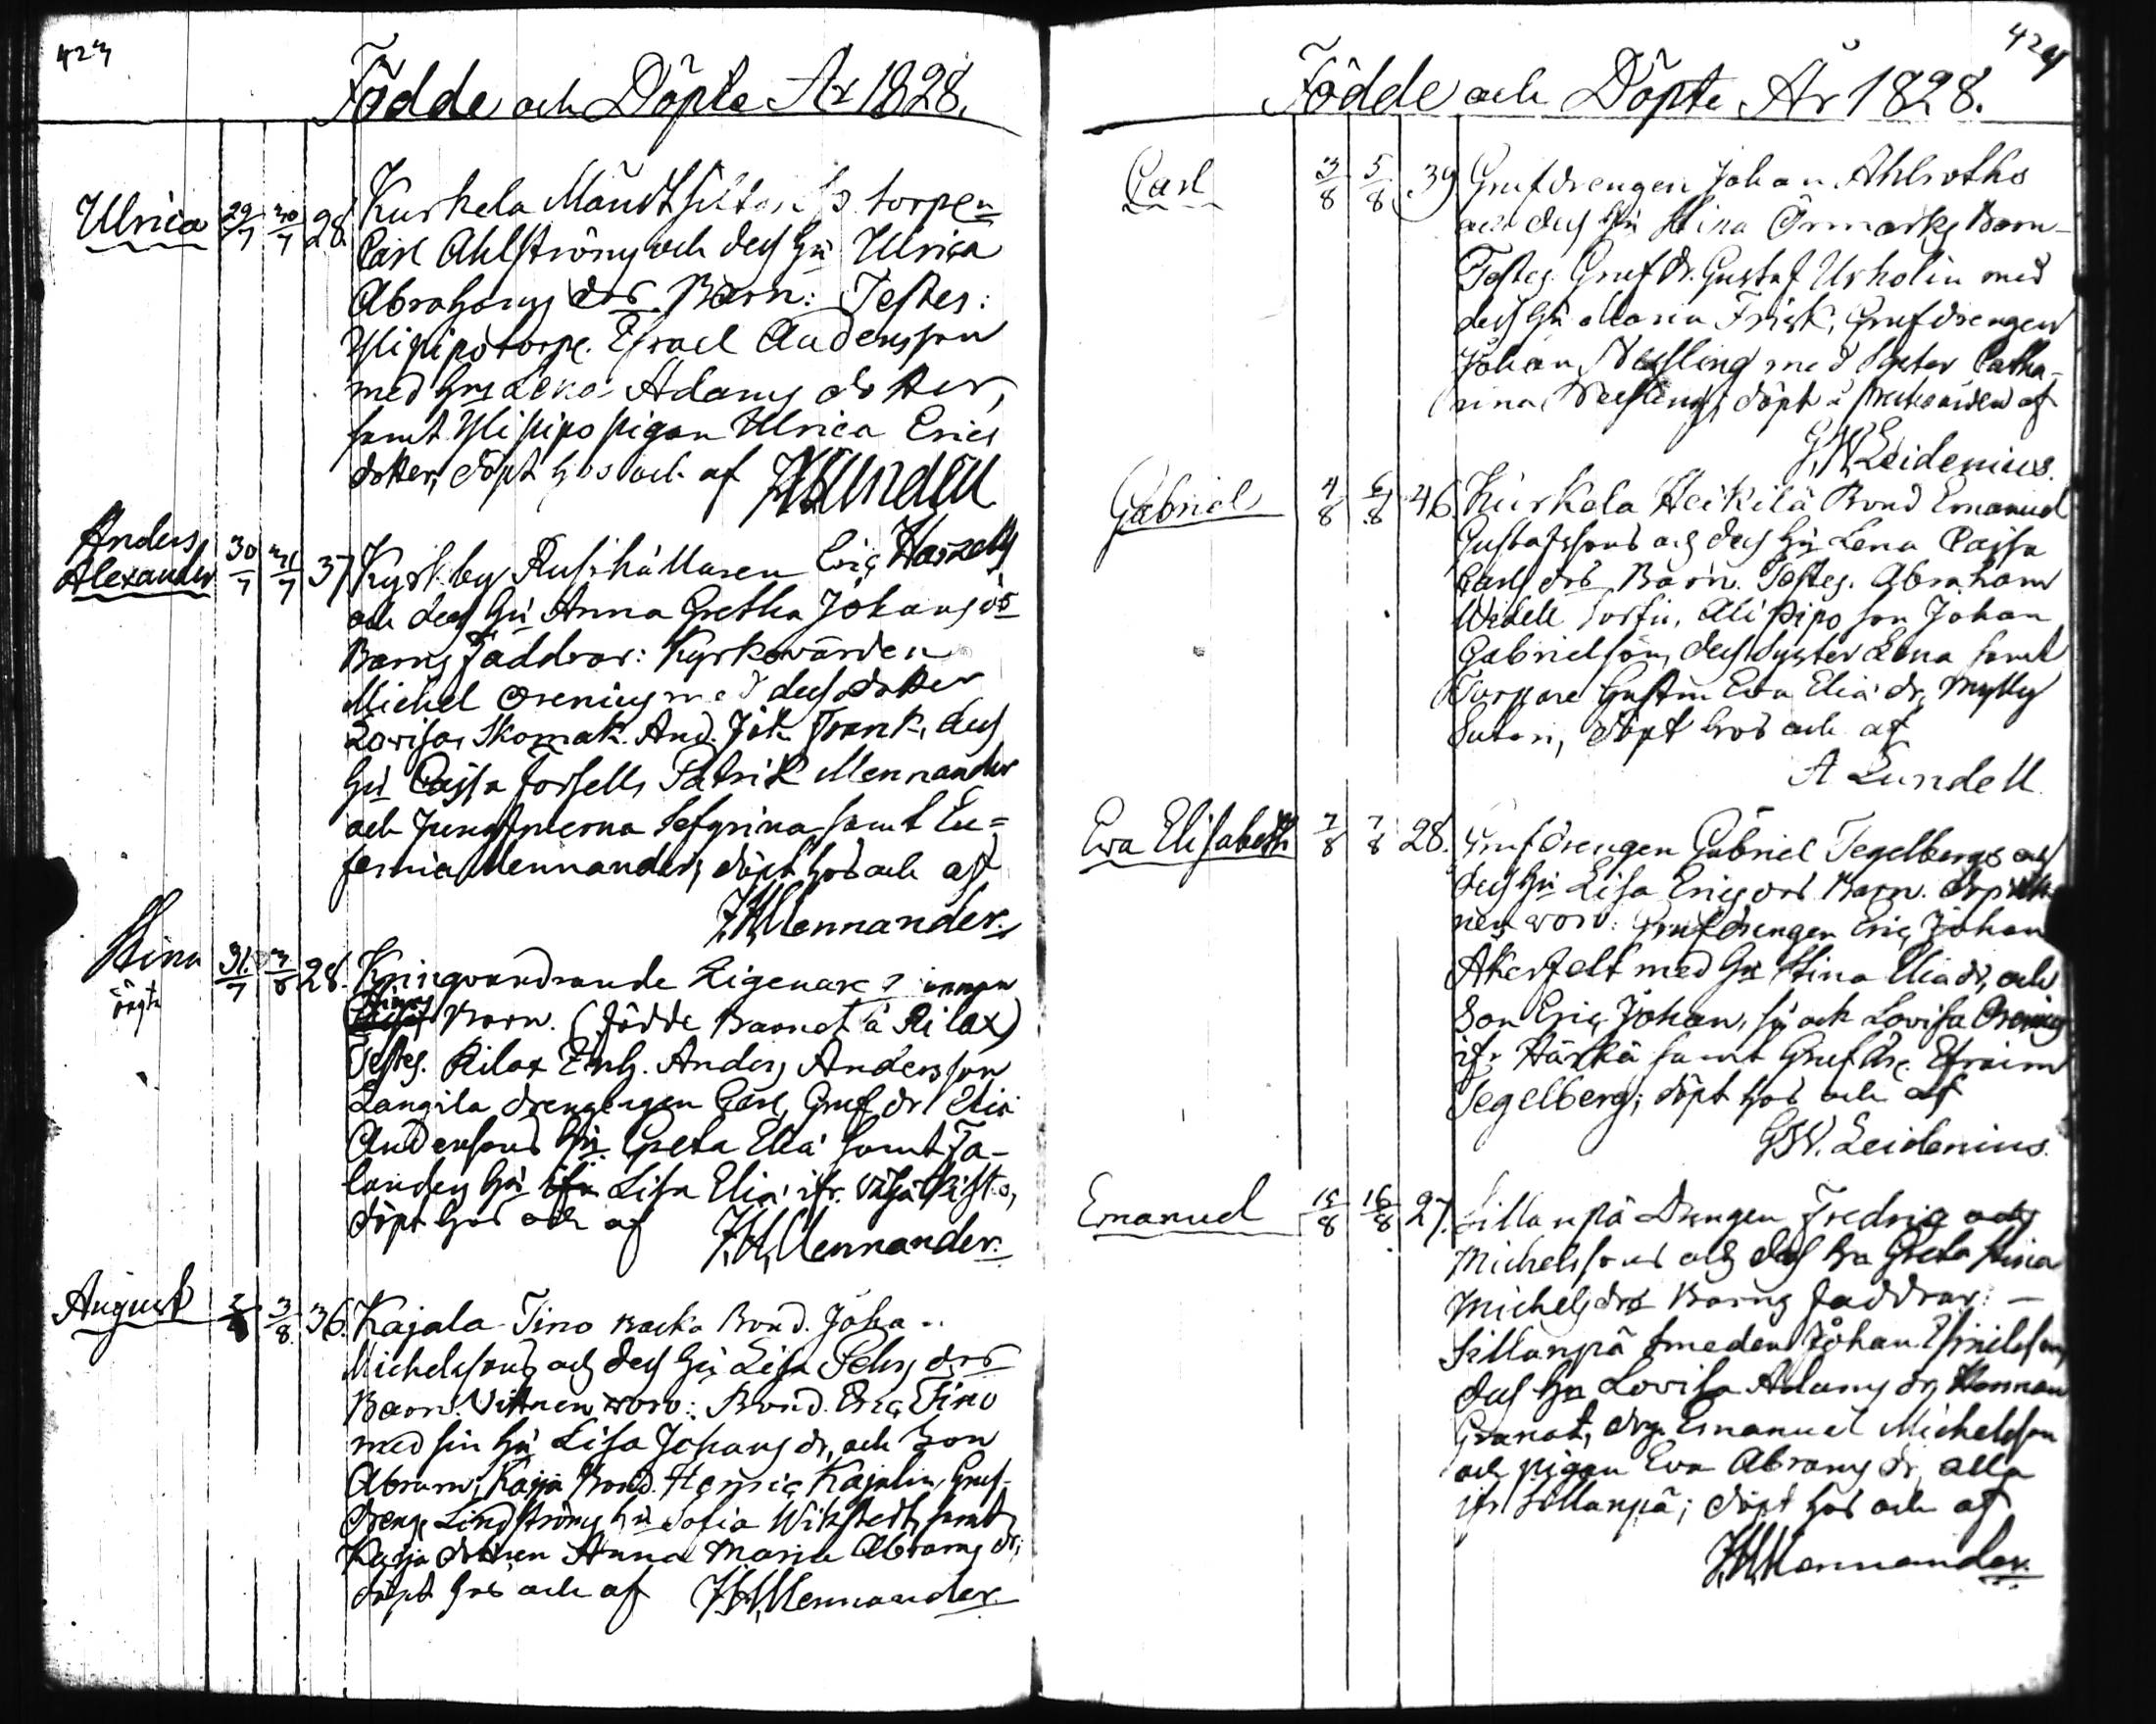 423
Födde och Döpte År 1828.
Ulrica 29/7 30/7 28. Kurkela torpen
Carl Ahlströms och dess Hu Ulrica
Abrahams drs Barn: Testes:
Ylipipo torp. Israel Andersson
med Adams dotter,
samt Ylipipo pigan Ulrica Erics
dotter, döpt hos och af Lundell
Anders
Alexander 30/7 31/7 37 Kyrkby Rusthållaren Eric
och dess Hu Anna Gretha Johans ds
Barns Faddrar: Kyrkovärden
Michel Orenius med dess dotter
Lovisa, Skomak. And. Joh. Frank, dess
Hu Cajsa Forsell, Patrik Mennander
och Jungfruerna Sefgrina samt Eu=
femia Mennander, döpt hos och af
Mennander.
Stina
oägta 31/7 3/8 28. Kringvandrande Zigenare
Stinas Barn. (födde Barnet å Kilax)
Testes. Kilax Enh. Anders Andersson
Langila drengen Carl, Grufdr Elia
Anderssons Hu Greta Elia samt Ja-
landers Hu Lisa Elia ifr.
döpt hos och af Mennander.
August 2/8 3/8 36. Kajala Tino backa Bond. Joha..
Michelssons och dess Hu Lisa drs
Barn. Vittnen woro: Bond. Eric Tino
med sin Hu Lisa Johans dr, och Son
Abram, Kajja Bond. Henric Kajalin, Gruf-
dreng Lindströms Hu Sofia Wikstedt, samt
Kajja dottren Anna Maria Abrams dr;
döpt hos och af Mennander.
424
Födde och Döpte År 1828.
Carl 3/8 5/8 39 Grufdrengen Johan Ahlroths
och dess Hu Stina Örnmarks Barn
Testes. Grufdr. Gustaf Urholin med
dess Hu Maria Frisk, Grufdrengen
Johan Wessling med Syster Catha-
rina Wessling, döpt å af
G.W. Leidenius.
Gabriel 4/8 6/8 46. Kurkela Heikilä Bond Emanuel
Gustafssons och dess Hu Lena Cajsa
Carls drs Barn. Testes. Abraham
Widell Ali Pipo son Johan
Gabrielson, dess Syster Lena samt
Torpare Hustru Eva Elia dr, Mylly
Sutari, döpt hos och af
A Lundell
Eva Elisabeth 7/8 7/8 28. Grufdrengen Gabriel Tegelbergs och
dess Hu Lisa Erics drs Barn.
nen woro: Grufdrengen Eric Johan
Åkerfelt med Hu Stina Elia dr, och
Son Eric Johan, och Lovisa Orenius
ifr Härkä samt Grufdr. Efraim
Tegelberg; döpt hos och af
G.W. Leidenius.
Emanuel 15/8 16/8 27. Sillanpä Drengen Fredric
Michelssons och dess Hu Greta Stina
Michels drs Barns Faddrar: —
Sillanpä Smeden Johan
dess Hu Lovisa Adams dr, Herman
Granat, drg. Emanuel Michelsson
och pigan Eva Abrams dr, alla
ifr Sillanpä; döpt hos och af
Mennander.